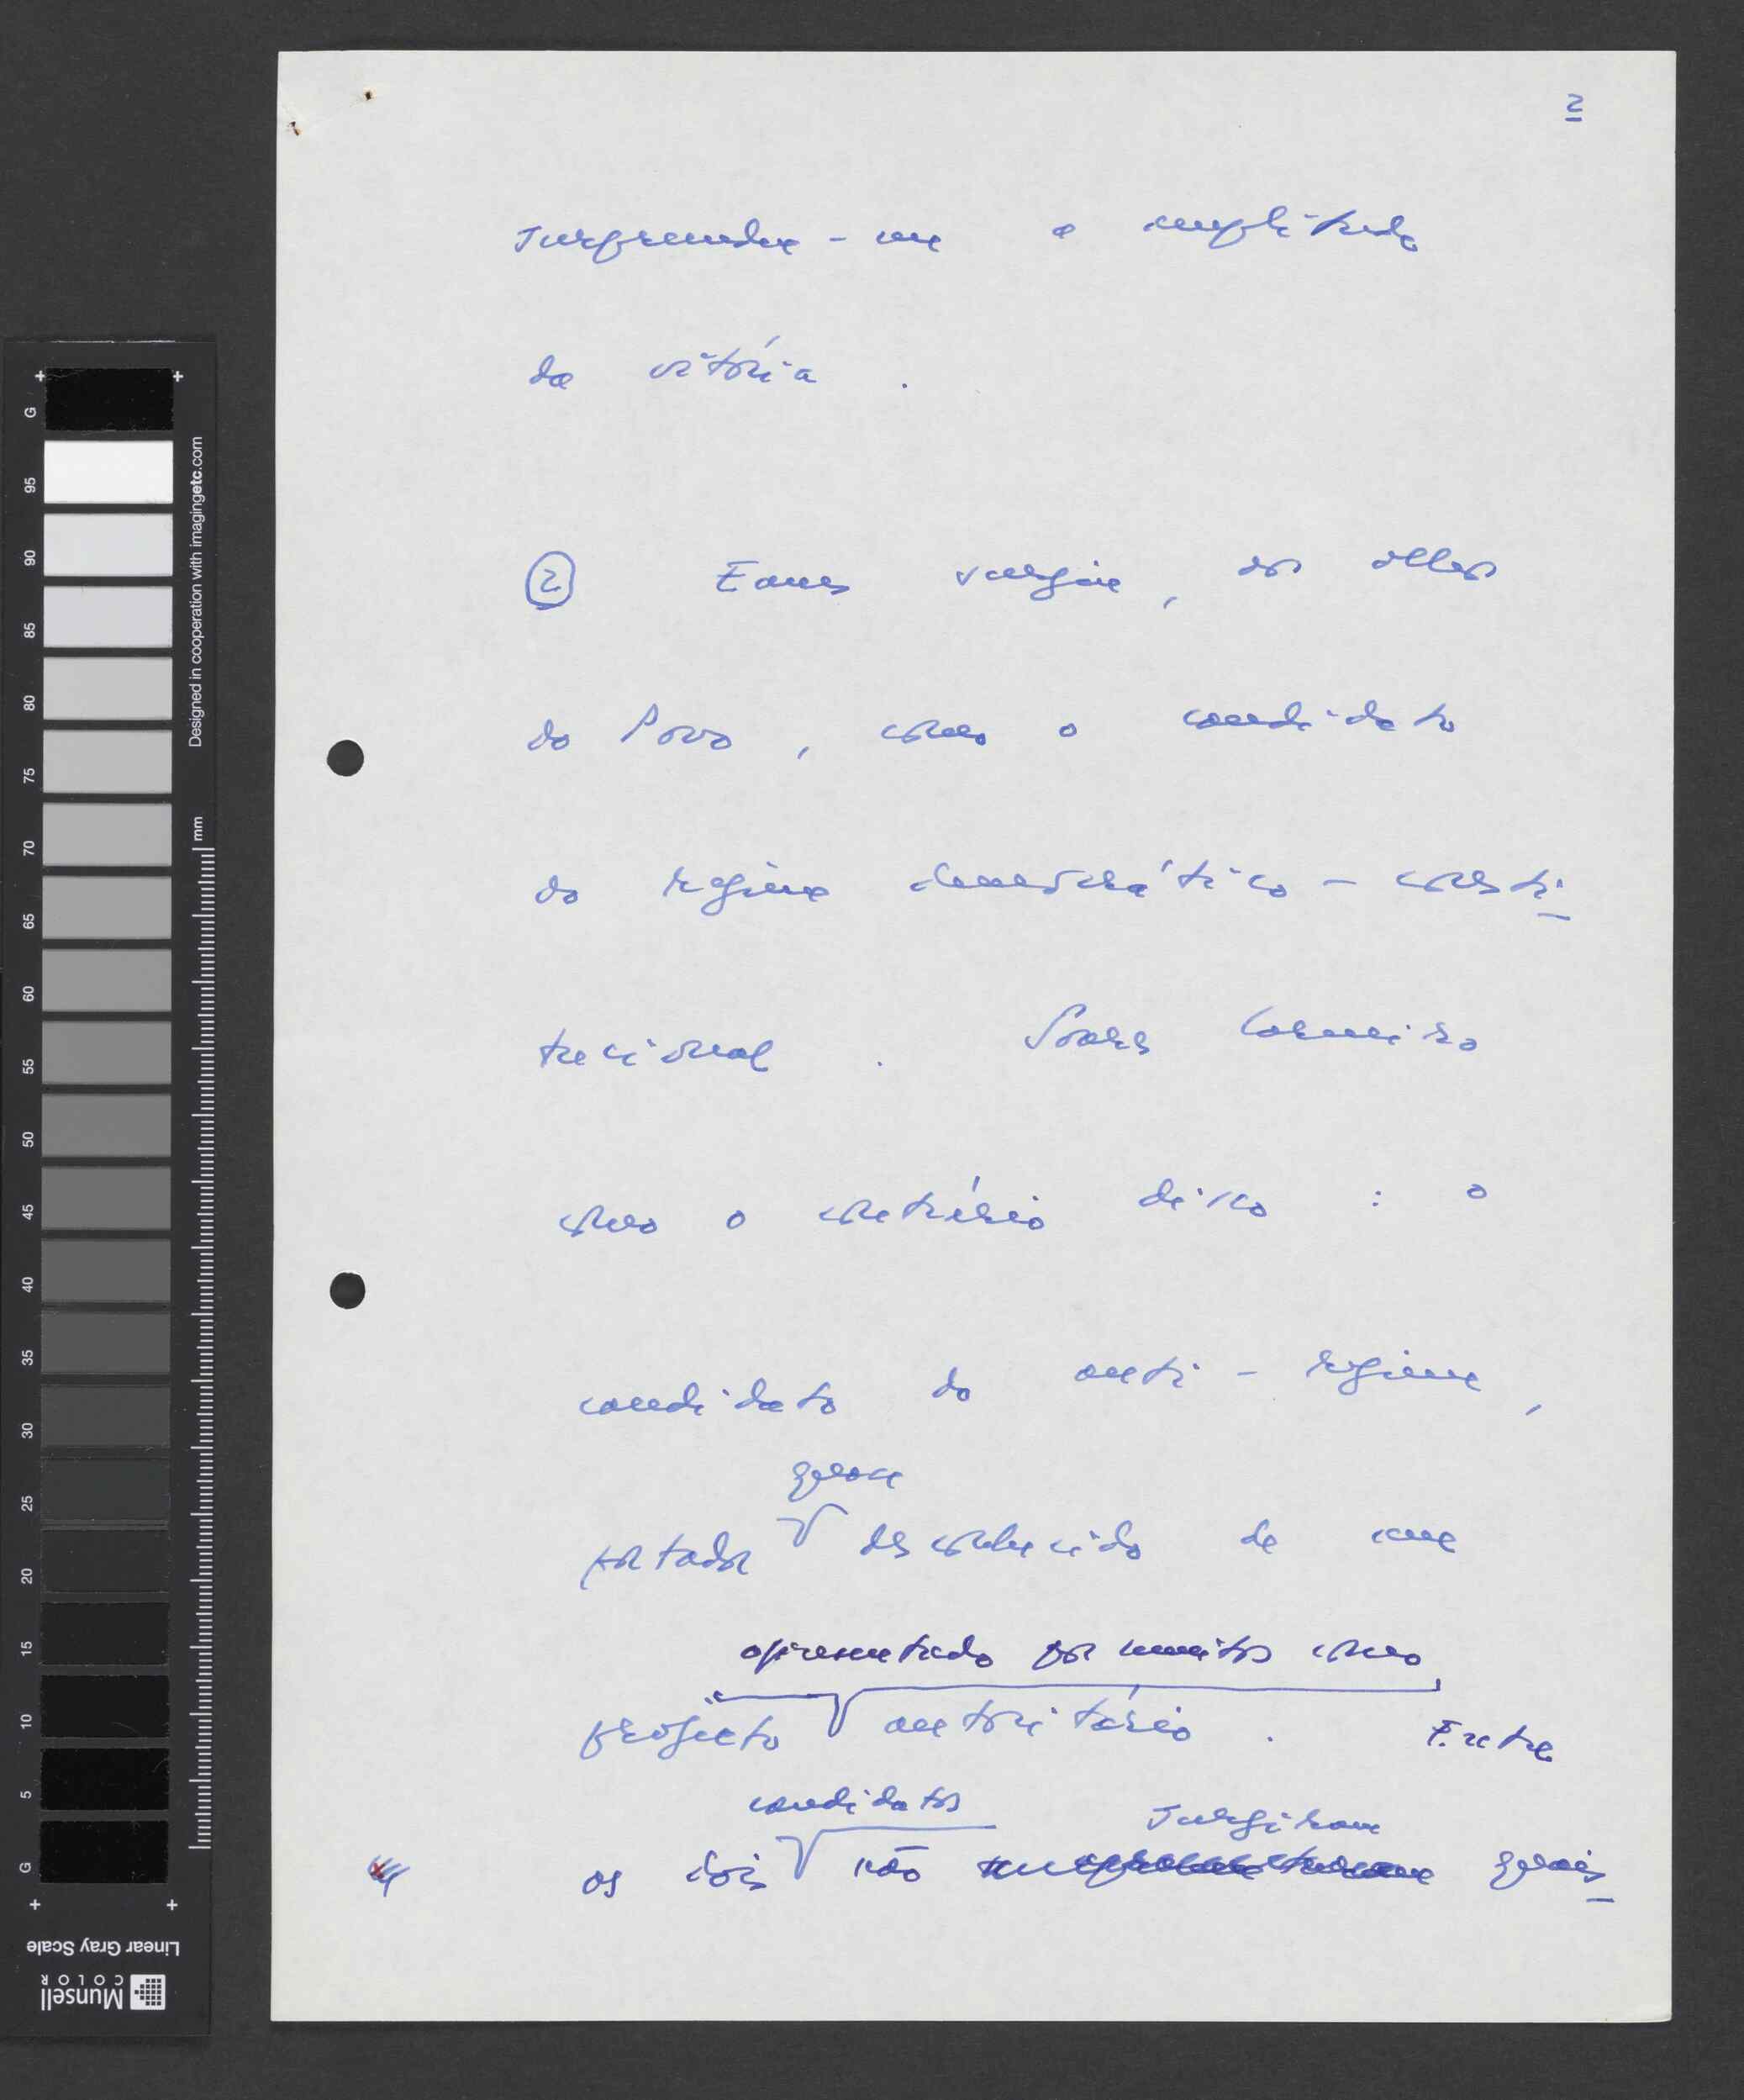 2
surpreende-me a amplitude
da vitória .
② Eanes surgiu, aos olhos
do Povo , como o candidato
do regime democrático - consti-
tucional . Soares Carneiro
como o contrário disso : o
candidato do anti - regime ,
quase
portador desconhecido de um
apresentado por muitos como
projecto autoritário . Entre
candidatos surgiram
os dois não quais-
G 95 90 85 80 75 70 65 60 55 50 45 40 35 30 25 20 15 10 5 G
Designed in cooperation with imagingetc.com
mm
Linear Gray Scale
Munsell
COLOR